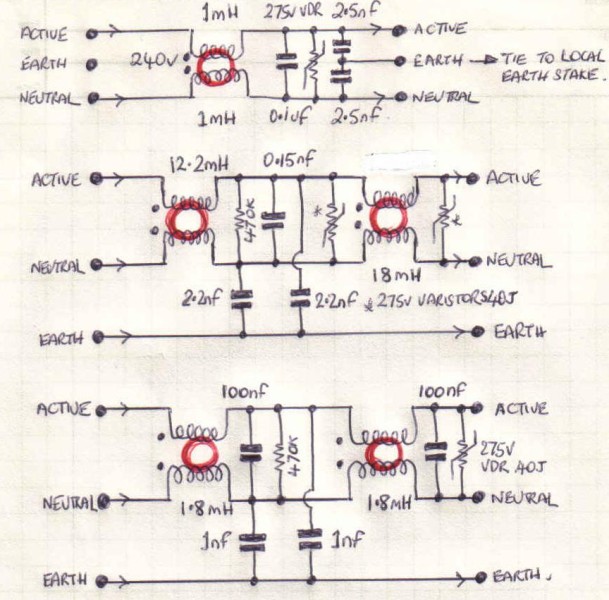 1mH 275V VDR 2.5nf
ACTIVE ACTIVE
EARTH 240V EARTH → TIE TO LOCAL
EARTH STAKE.
NEUTRAL NEUTRAL
1mH 0.1uf 2.5nf
12.2mH 0.15nf
ACTIVE ACTIVE
470K * *
NEUTRAL NEUTRAL
18mH
2.2nf 2.2nf * 275V VARISTORS 40J
EARTH EARTH
100nf 100nf
ACTIVE ACTIVE
470K 275V
VDR 40J
NEUTRAL NEUTRAL
1.8mH 1.8mH
1nf 1nf
EARTH EARTH.